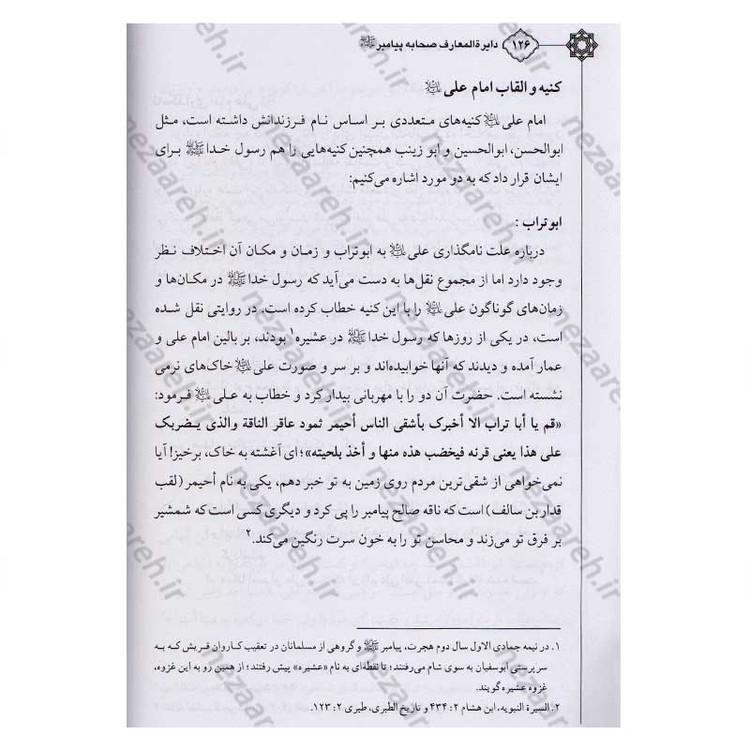 ۱۲۶
دایرةالمعارف صحابه پیامبر ﷺ
کنیه و القاب امام علی
امام علی کنیه‌های متعددی بر اساس نام فرزندانش داشته است، مثل
ابوالحسن، ابوالحسین و ابو زینب همچنین کنیه‌هایی را هم رسول خدا ﷺ برای
ایشان قرار داد که به دو مورد اشاره می‌کنیم:
ابو تراب :
درباره علت نامگذاری علی به ابوتراب و زمان و مکان آن اختلاف نظر
وجود دارد اما از مجموع نقل‌ها به دست می‌آید که رسول خدا ﷺ در مکان‌ها و
زمان‌های گوناگون علی را با این کنیه خطاب کرده است. در روایتی نقل شده
است، در یکی از روزها که رسول خدا ﷺ در عشیره۱ بودند، بر بالین امام علی و
عمار آمده و دیدند که آنها خوابیده‌اند و بر سر و صورت علی خاک‌های نرمی
نشسته است. حضرت آن دو را با مهربانی بیدار کرد و خطاب به علی فرمود:
«قم یا أبا تراب الا أخبرک بأشقی الناس أحیمر ثمود عاقر الناقة والذی یضربک
علی هذا یعنی قرنه فیخضب هذه منها و أخذ بلحیته»؛ ای آغشته به خاک، برخیز! آیا
نمی‌خواهی از شقی‌ترین مردم روی زمین به تو خبر دهم، یکی به نام أحیمر (لقب
قدار بن سالف) است که ناقه صالح پیامبر را پی کرد و دیگری کسی است که شمشیر
بر فرق تو می‌زند و محاسن تو را به خون سرت رنگین می‌کند.۲
۱. در نیمه جمادی الاول سال دوم هجرت، پیامبر ﷺ و گروهی از مسلمانان در تعقیب کاروان قریش که به
سرپرستی ابوسفیان به سوی شام می‌رفتند؛ تا نقطه‌ای به نام «عشیره» پیش رفتند؛ از همین رو به این غزوه،
غزوه عشیره گویند.
۲. السیرة النبویه، ابن هشام ۲: ۴۳۴ و تاریخ الطبری، طبری ۲: ۱۲۳.
nezaareh.ir